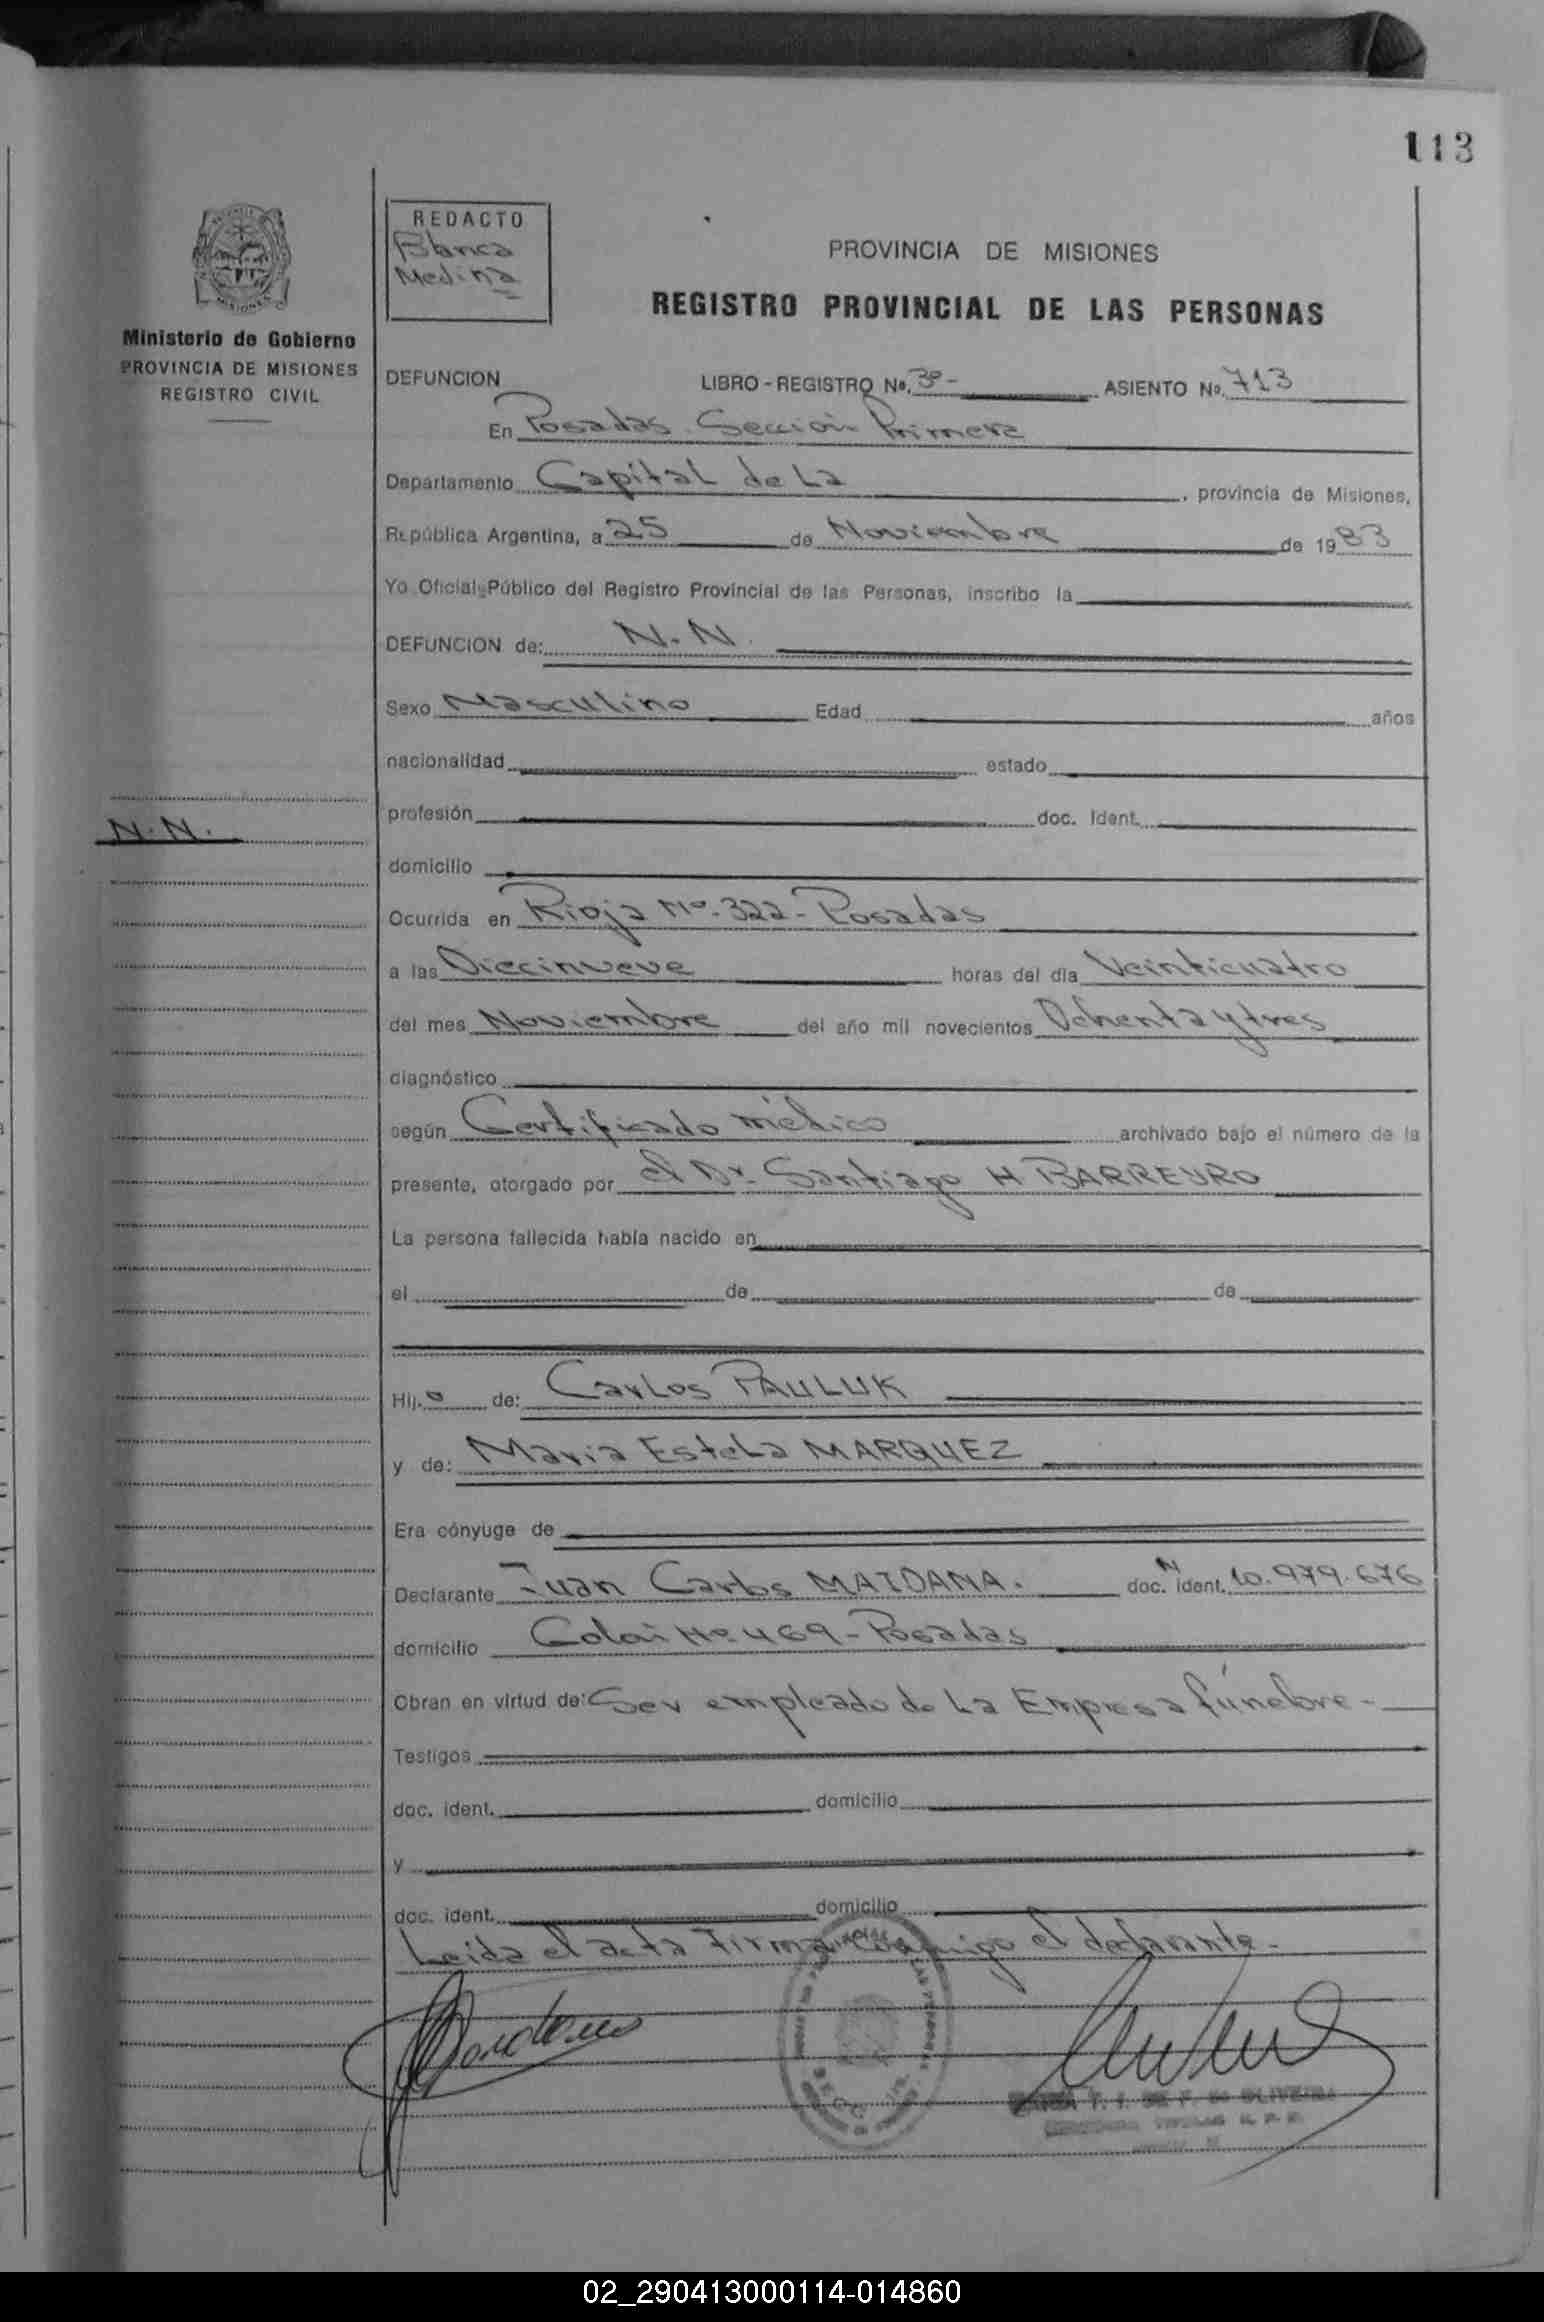 113
REDACTO
Blanca
Medina
PROVINCIA DE MISIONES
REGISTRO PROVINCIAL DE LAS PERSONAS
Ministerio de Gobierno
PROVINCIA DE MISIONES
REGISTRO CIVIL
DEFUNCION LIBRO - REGISTRO No. 3º- ASIENTO No. 713
En Posadas Sección Primera
Departamento Capital de La, provincia de Misiones,
República Argentina, a 25 de Noviembre de 1983
Yo Oficial Público del Registro Provincial de las Personas, inscribo la
DEFUNCION de: N.N.
Sexo Masculino Edad años
nacionalidad estado
profesión doc. Ident.
N.N.
domicilio
Ocurrida en Rioja Nº 322 - Posadas
a las Diecinueve horas del día Veinticuatro
del mes Noviembre del año mil novecientos Ochenta y tres
diagnóstico
según Certificado médico archivado bajo el número de la
presente, otorgado por el Dr. Santiago H BARREYRO
La persona fallecida había nacido en
el de de
Hij.o de: Carlos PAULUK
y de: Maria Estela MARQUEZ
Era cónyuge de
Declarante Juan Carlos MAIDANA. doc. N ident. 10.979.676
domicilio Colón Nº 469 - Posadas
Obran en virtud de: Ser empleado de La Empresa fúnebre -
Testigos
doc. ident. domicilio
y
doc. ident. domicilio
Leida el acta Firma Conmigo el declarante -
02_290413000114-014860